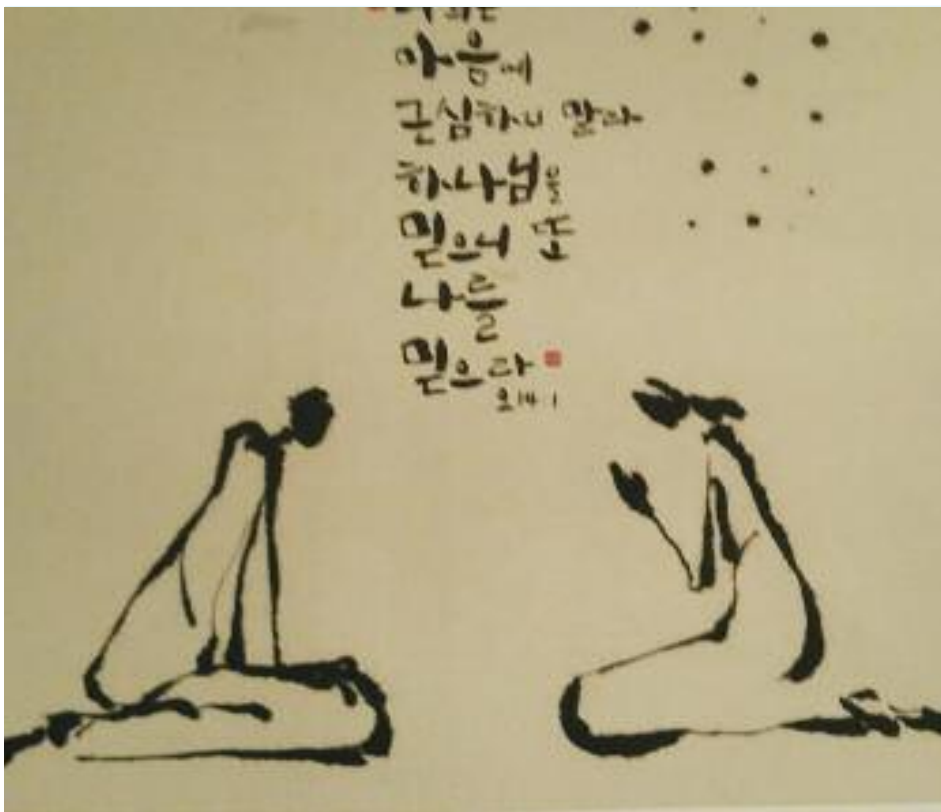 마음에
근심하지 말라
하나님을
믿으니 또
나를
믿으라
요 14 1